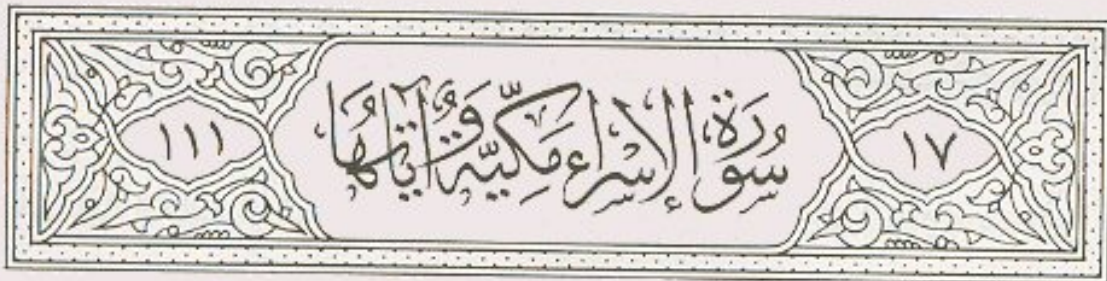 ١٧
سُورَةُ الإِسْرَاءِ مَكِّيَّةٌ وَآيَاتُهَا
١١١